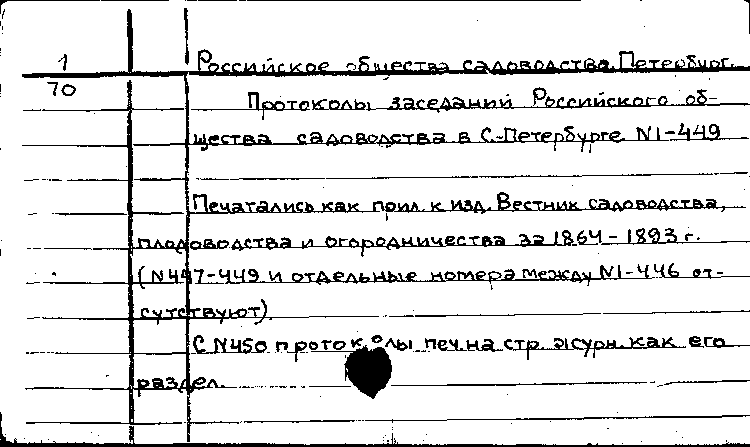 1
70
Российское общества садоводства. Петербург.
Протоколы заседаний Российского об-
щества садоводства в С.-Петербурге N1-449
Печатались как прил. к изд. Вестник садоводства,
плодоводства и огородничества за 1864-1893 г.
(N447-449 и отдельные номера между N1-446 от-
сутствуют).
С N450 протоколы печ. на стр. журн. как его
раздел.